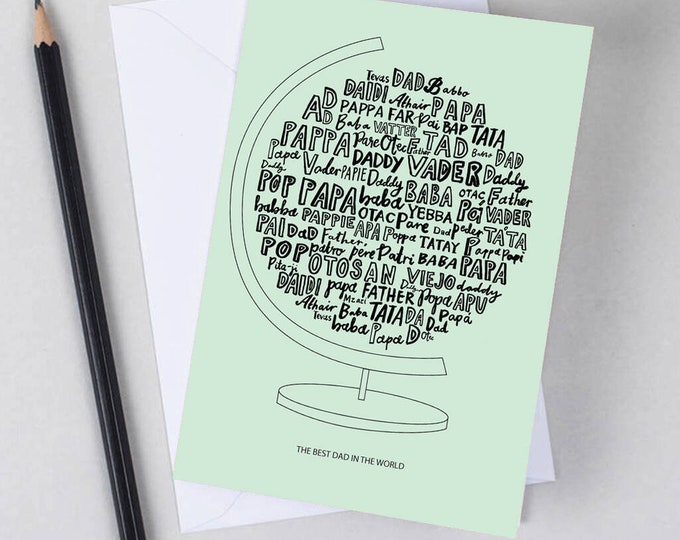 Tevas DAD Babbo
DAIDI Athair PAPA
AD PAPPA FAR Pai BAP TATA
Baba VATTER TAD DAD
PAPPA Pare Otec Father
Papa DADDY VADER Daddy
Daddy Vader PAPIE Daddy BABA OTAC Father
POP PAPA baba YEBBA Pai VADER
babba PAPPIE OTAC Pare Dad peder TATA
PAI DaD Father, APA Poppa TATAY Pappa Papi
POP patro pere Patri BABA PAPA
Pita-ji OTOSAN VIEJO daddy
DAIDI papa FATHER Daddy Popa APU
Athair Baba Mzazi TATA DA Dad Papa
Tevas baba Papa D Otec
THE BEST DAD IN THE WORLD